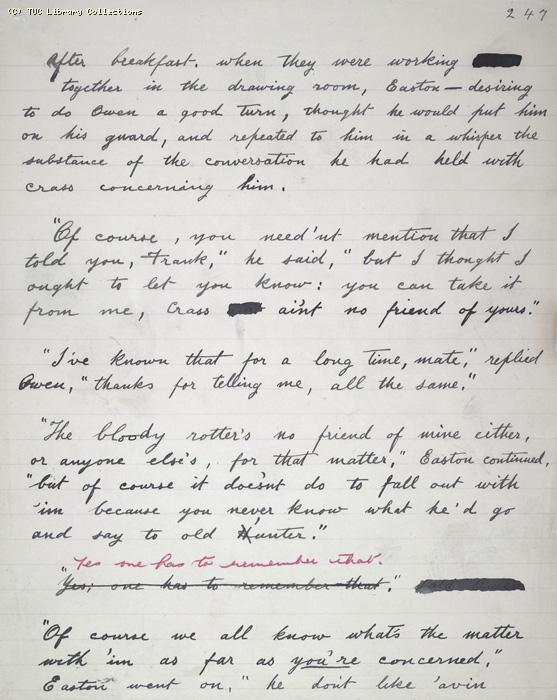 (C) TUC Library Collections
247
After breakfast. when they were working
together in the drawing room, Easton — desiring
to do Owen a good turn, thought he would put him
on his guard, and repeated to him in a whisper the
substance of the conversation he had held with
Crass concerning him.
"Of course, you need'nt mention that I
told you, Frank," he said, "but I thought I
ought to let you know: you can take it
from me, Crass ain't no friend of yours."
"I've known that for a long time, mate," replied
Owen, "thanks for telling me, all the same."
"The bloody rotter's no friend of mine either,
or anyone else's, for that matter," Easton continued,
"but of course it does'nt do to fall out with
'im because you never know what he'd go
and say to old 'unter."
Yes one has to remember that.
"Yes, one has to remember that."
"Of course we all know whats the matter
with 'im as far as you're concerned,"
Easton went on, "he dont like 'avin